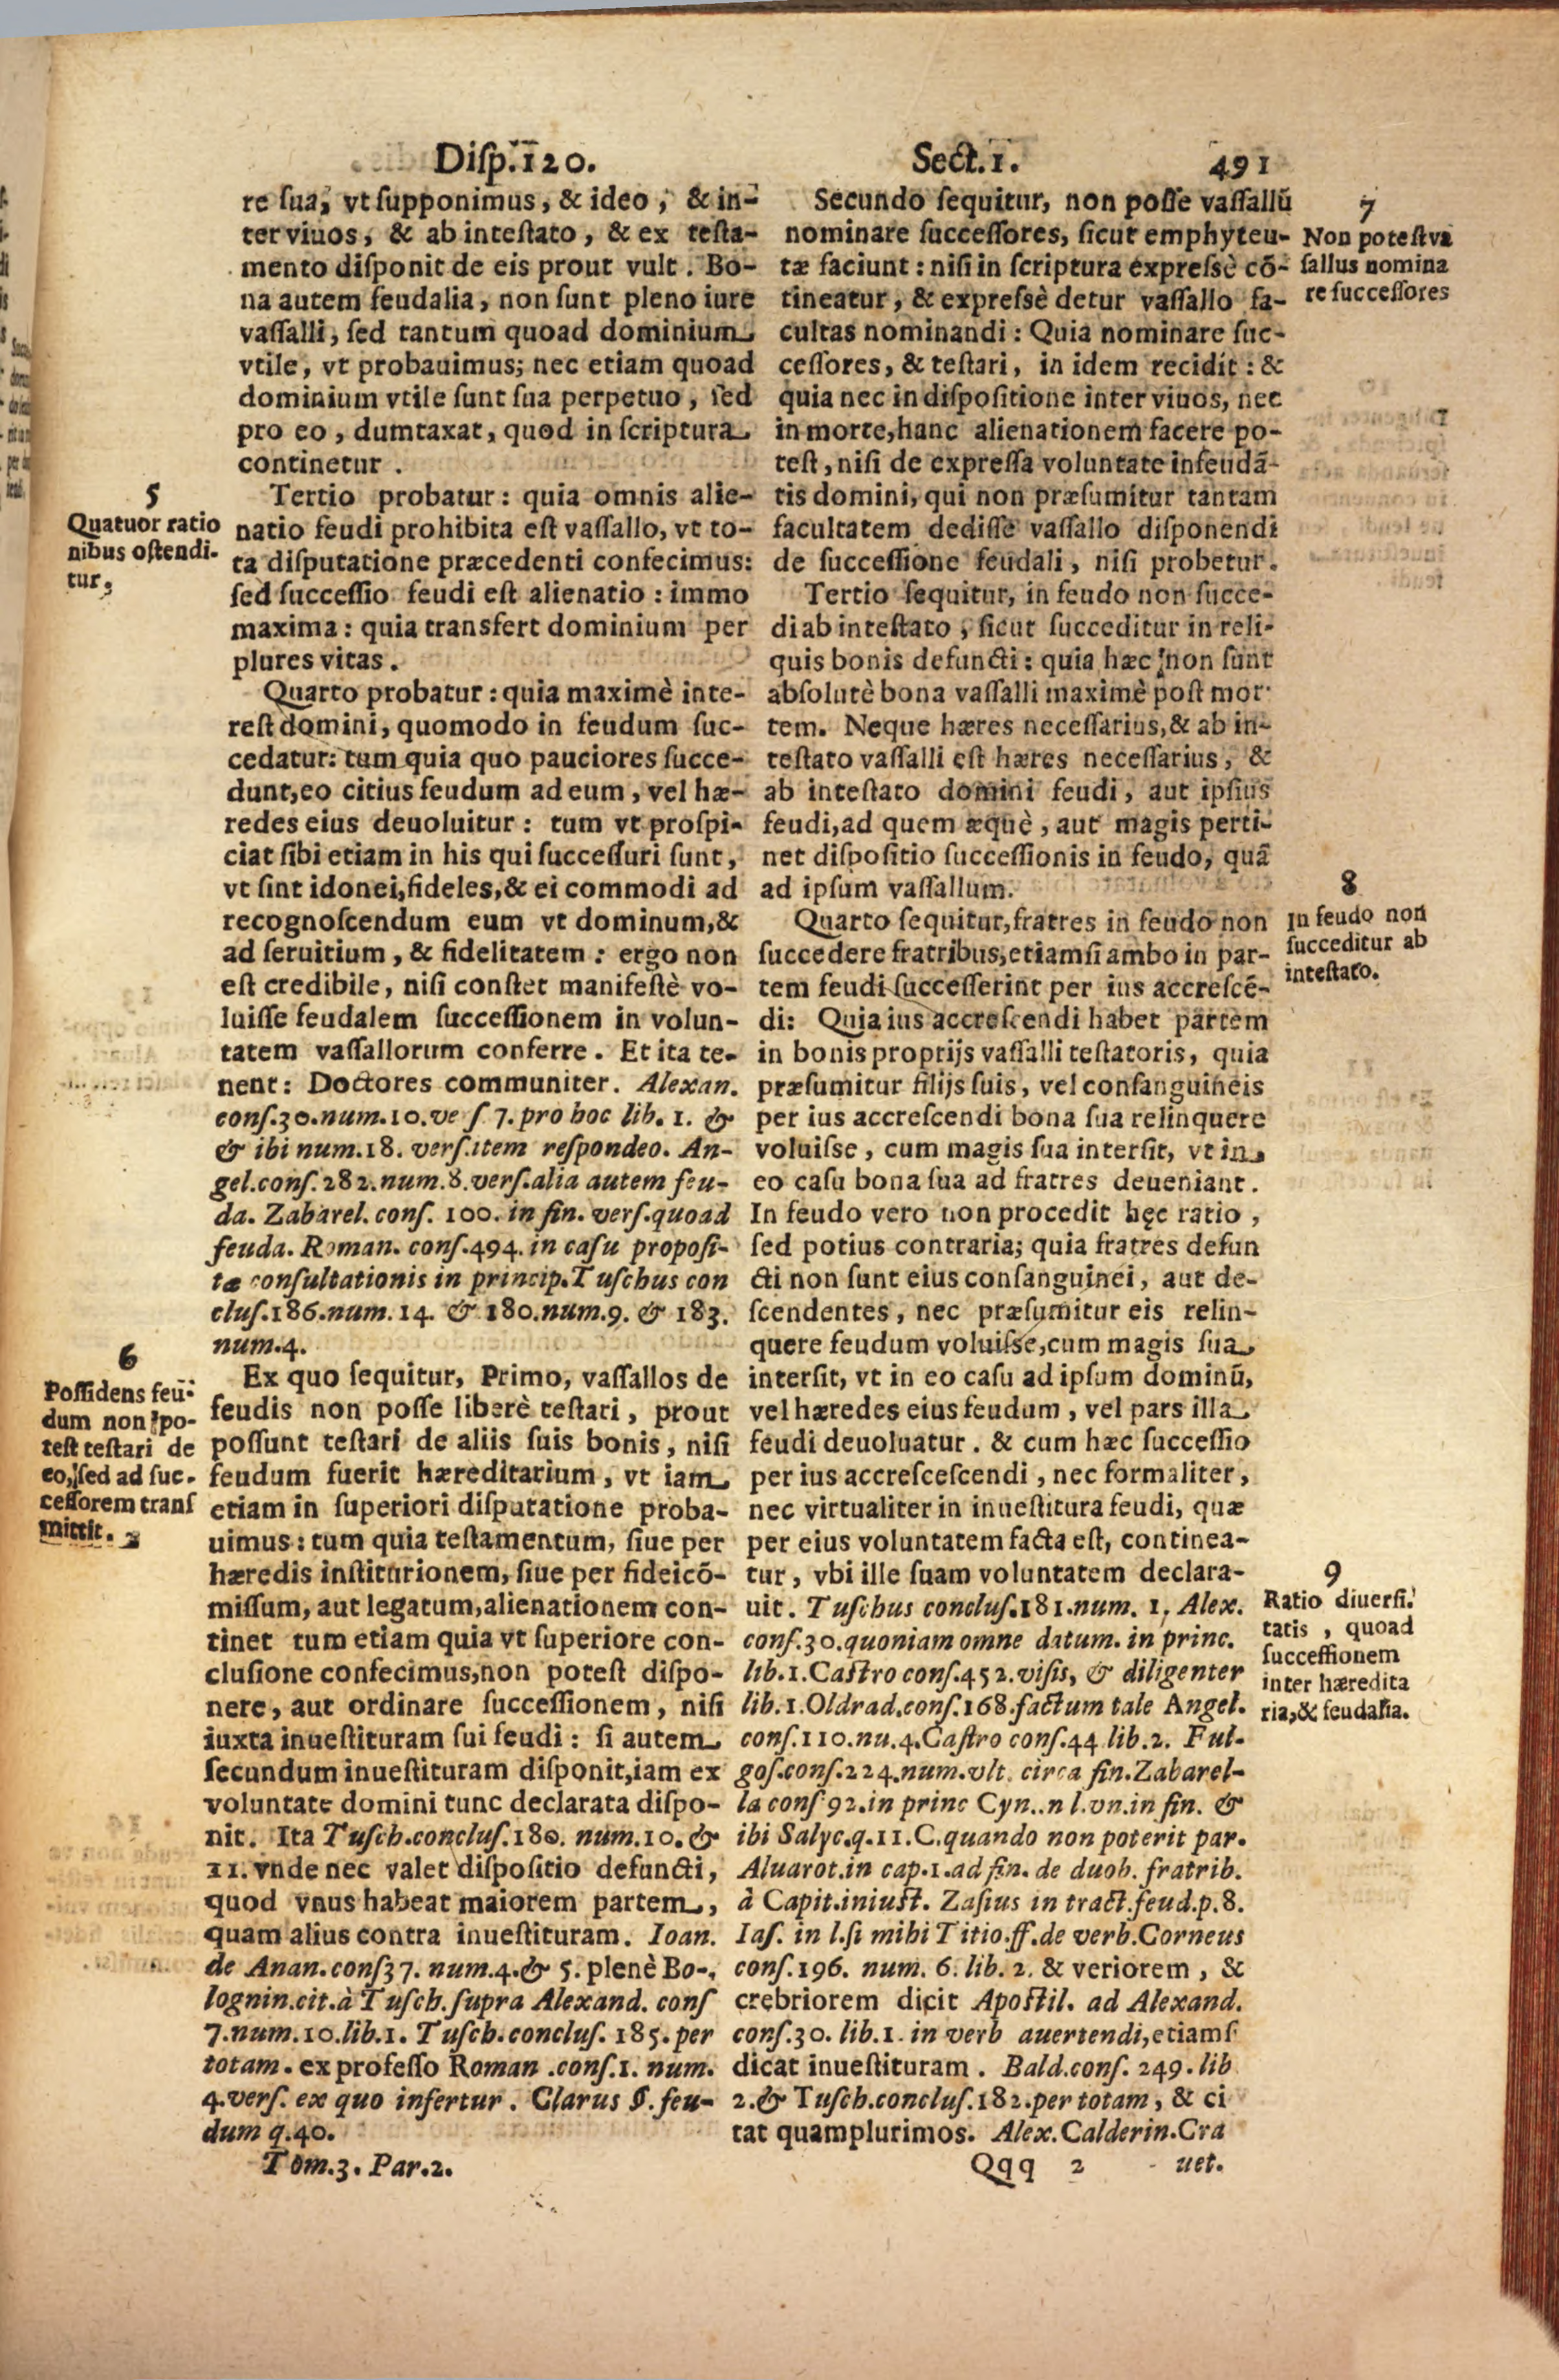 Disp. 120. Sect. 1. 491
re sua, vt supponimus, & ideo, & in-
ter viuos, & ab intestato, & ex testa-
mento disponit de eis prout vult. Bo-
na autem feudalia, non sunt pleno iure
vassalli, sed tantum quoad dominium
vtile, vt probauimus; nec etiam quoad
dominium vtile sunt sua perpetuo, sed
pro eo, dumtaxat, quod in scriptura
continetur.
5
Quatuor ratio
nibus ostendi-
tur.
Tertio probatur: quia omnis alie-
natio feudi prohibita est vassallo, vt to-
ta disputatione præcedenti confecimus:
sed successio feudi est alienatio: immo
maxima: quia transfert dominium per
plures vitas.
Quarto probatur: quia maximè inte-
rest domini, quomodo in feudum suc-
cedatur: tum quia quo pauciores succe-
dunt, eo citius feudum ad eum, vel hæ-
redes eius deuoluitur: tum vt prospi-
ciat sibi etiam in his qui successuri sunt,
vt sint idonei, fideles, & ei commodi ad
recognoscendum eum vt dominum, &
ad seruitium, & fidelitatem: ergo non
est credibile, nisi constet manifestè vo-
luisse feudalem successionem in volun-
tatem vassallorum conferre. Et ita te-
nent: Doctores communiter. Alexan.
cons. 30. num. 10. ve s 7. pro hoc lib. 1. &
& ibi num. 18. vers. item respondeo. An-
gel. cons. 282. num. 8. vers. alia autem feu-
da. Zabarel. cons. 100. in fin. vers. quoad
feuda. Roman. cons. 494. in casu proposi-
tæ consultationis in princip. Tuschus con
clus. 186. num. 14. & 180. num. 9. & 183.
num. 4.
6
Possidens feu-
dum non po-
test testari de
eo, sed ad suc-
cessorem trans
mittit.
Ex quo sequitur, Primo, vassallos de
feudis non posse liberè testari, prout
possunt testari de aliis suis bonis, nisi
feudum fuerit hæreditarium, vt iam
etiam in superiori disputatione proba-
uimus: tum quia testamentum, siue per
hæredis institutionem, siue per fideicõ-
missum, aut legatum, alienationem con-
tinet tum etiam quia vt superiore con-
clusione confecimus, non potest dispo-
nere, aut ordinare successionem, nisi
iuxta inuestituram sui feudi: si autem
secundum inuestituram disponit, iam ex
voluntate domini tunc declarata dispo-
nit. Ita Tusch. conclus. 180. num. 10. &
11. vnde nec valet dispositio defuncti,
quod vnus habeat maiorem partem,
quam alius contra inuestituram. Ioan.
de Anan. cons 37. num. 4. & 5. plenè Bo-
lognin. cit. à Tusch. supra Alexand. cons
7. num. 10. lib. 1. Tusch. conclus. 185. per
totam. ex professo Roman. cons. 1. num.
4. vers. ex quo infertur. Clarus §. feu-
dum q. 40.
Tom. 3. Par. 2.
Secundo sequitur, non posse vassallũ
nominare successores, sicut emphyteu-
tæ faciunt: nisi in scriptura expressè cõ-
tineatur, & expressè detur vassallo fa-
cultas nominandi: Quia nominare suc-
cessores, & testari, in idem recidit: &
quia nec in dispositione inter viuos, nec
in morte, hanc alienationem facere po-
test, nisi de expressa voluntate infeudã-
tis domini, qui non præsumitur tantam
facultatem dedisse vassallo disponendi
de successione feudali, nisi probetur.
7
Non potest va
sallus nomina
re successores
Tertio sequitur, in feudo non succe-
di ab intestato, sicut succeditur in reli-
quis bonis defuncti: quia hæc non sunt
absolutè bona vassalli maximè post mor-
tem. Neque hæres necessarius, & ab in-
testato vassalli est hæres necessarius, &
ab intestato domini feudi, aut ipsius
feudi, ad quem æquè, aut magis perti-
net dispositio successionis in feudo, quã
ad ipsum vassallum.
8
In feudo non
succeditur ab
intestato.
Quarto sequitur, fratres in feudo non
succedere fratribus, etiamsi ambo in par-
tem feudi successerint per ius accrescẽ-
di: Quia ius accrescendi habet partem
in bonis proprijs vassalli testatoris, quia
præsumitur filijs suis, vel consanguineis
per ius accrescendi bona sua relinquere
voluisse, cum magis sua intersit, vt in
eo casu bona sua ad fratres deueniant.
In feudo vero non procedit hęc ratio,
sed potius contraria; quia fratres defun
cti non sunt eius consanguinei, aut de-
scendentes, nec præsumitur eis relin-
quere feudum voluisse, cum magis sua
intersit, vt in eo casu ad ipsum dominũ,
vel hæredes eius feudum, vel pars illa
feudi deuoluatur. & cum hæc successio
per ius accrescescendi, nec formaliter,
nec virtualiter in inuestitura feudi, quæ
per eius voluntatem facta est, continea-
tur, vbi ille suam voluntatem declara-
uit. Tuschus conclus. 181. num. 1. Alex.
cons. 30. quoniam omne datum. in princ.
lib. 1. Castro cons. 452. visis, & diligenter
lib. 1. Oldrad. cons. 168. factum tale Angel.
cons. 110. nu. 4. Castro cons. 44 lib. 2. Ful-
gos. cons. 224. num. vlt. circa fin. Zabarel-
la cons 92. in princ Cyn. .n l. vn. in fin. &
ibi Salyc. q. 11. C. quando non poterit par.
Aluarot. in cap. 1. ad fin. de duob. fratrib.
à Capit. iniust. Zasius in tract. feud. p. 8.
Ias. in l. si mihi Titio. ff. de verb. Corneus
cons. 196. num. 6. lib. 2. & veriorem, &
crebriorem dicit Apostil. ad Alexand.
cons. 30. lib. 1. in verb auertendi, etiams
dicat inuestituram. Bald. cons. 249. lib
2. & Tusch. conclus. 182. per totam, & ci
tat quamplurimos. Alex. Calderin. Cra
9
Ratio diuersi-
tatis, quoad
successionem
inter hæredita
ria, & feudalia.
Qqq 2 uet.